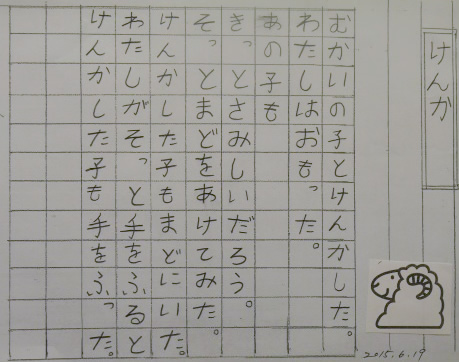 けんか
むかいの子とけんかした。
わたしはおもった。
あの子も
きっとさみしいだろう。
そっとまどをあけてみた。
けんかした子もまどにいた。
わたしがそっと手をふると
けんかした子も手をふった。
2015.6.19